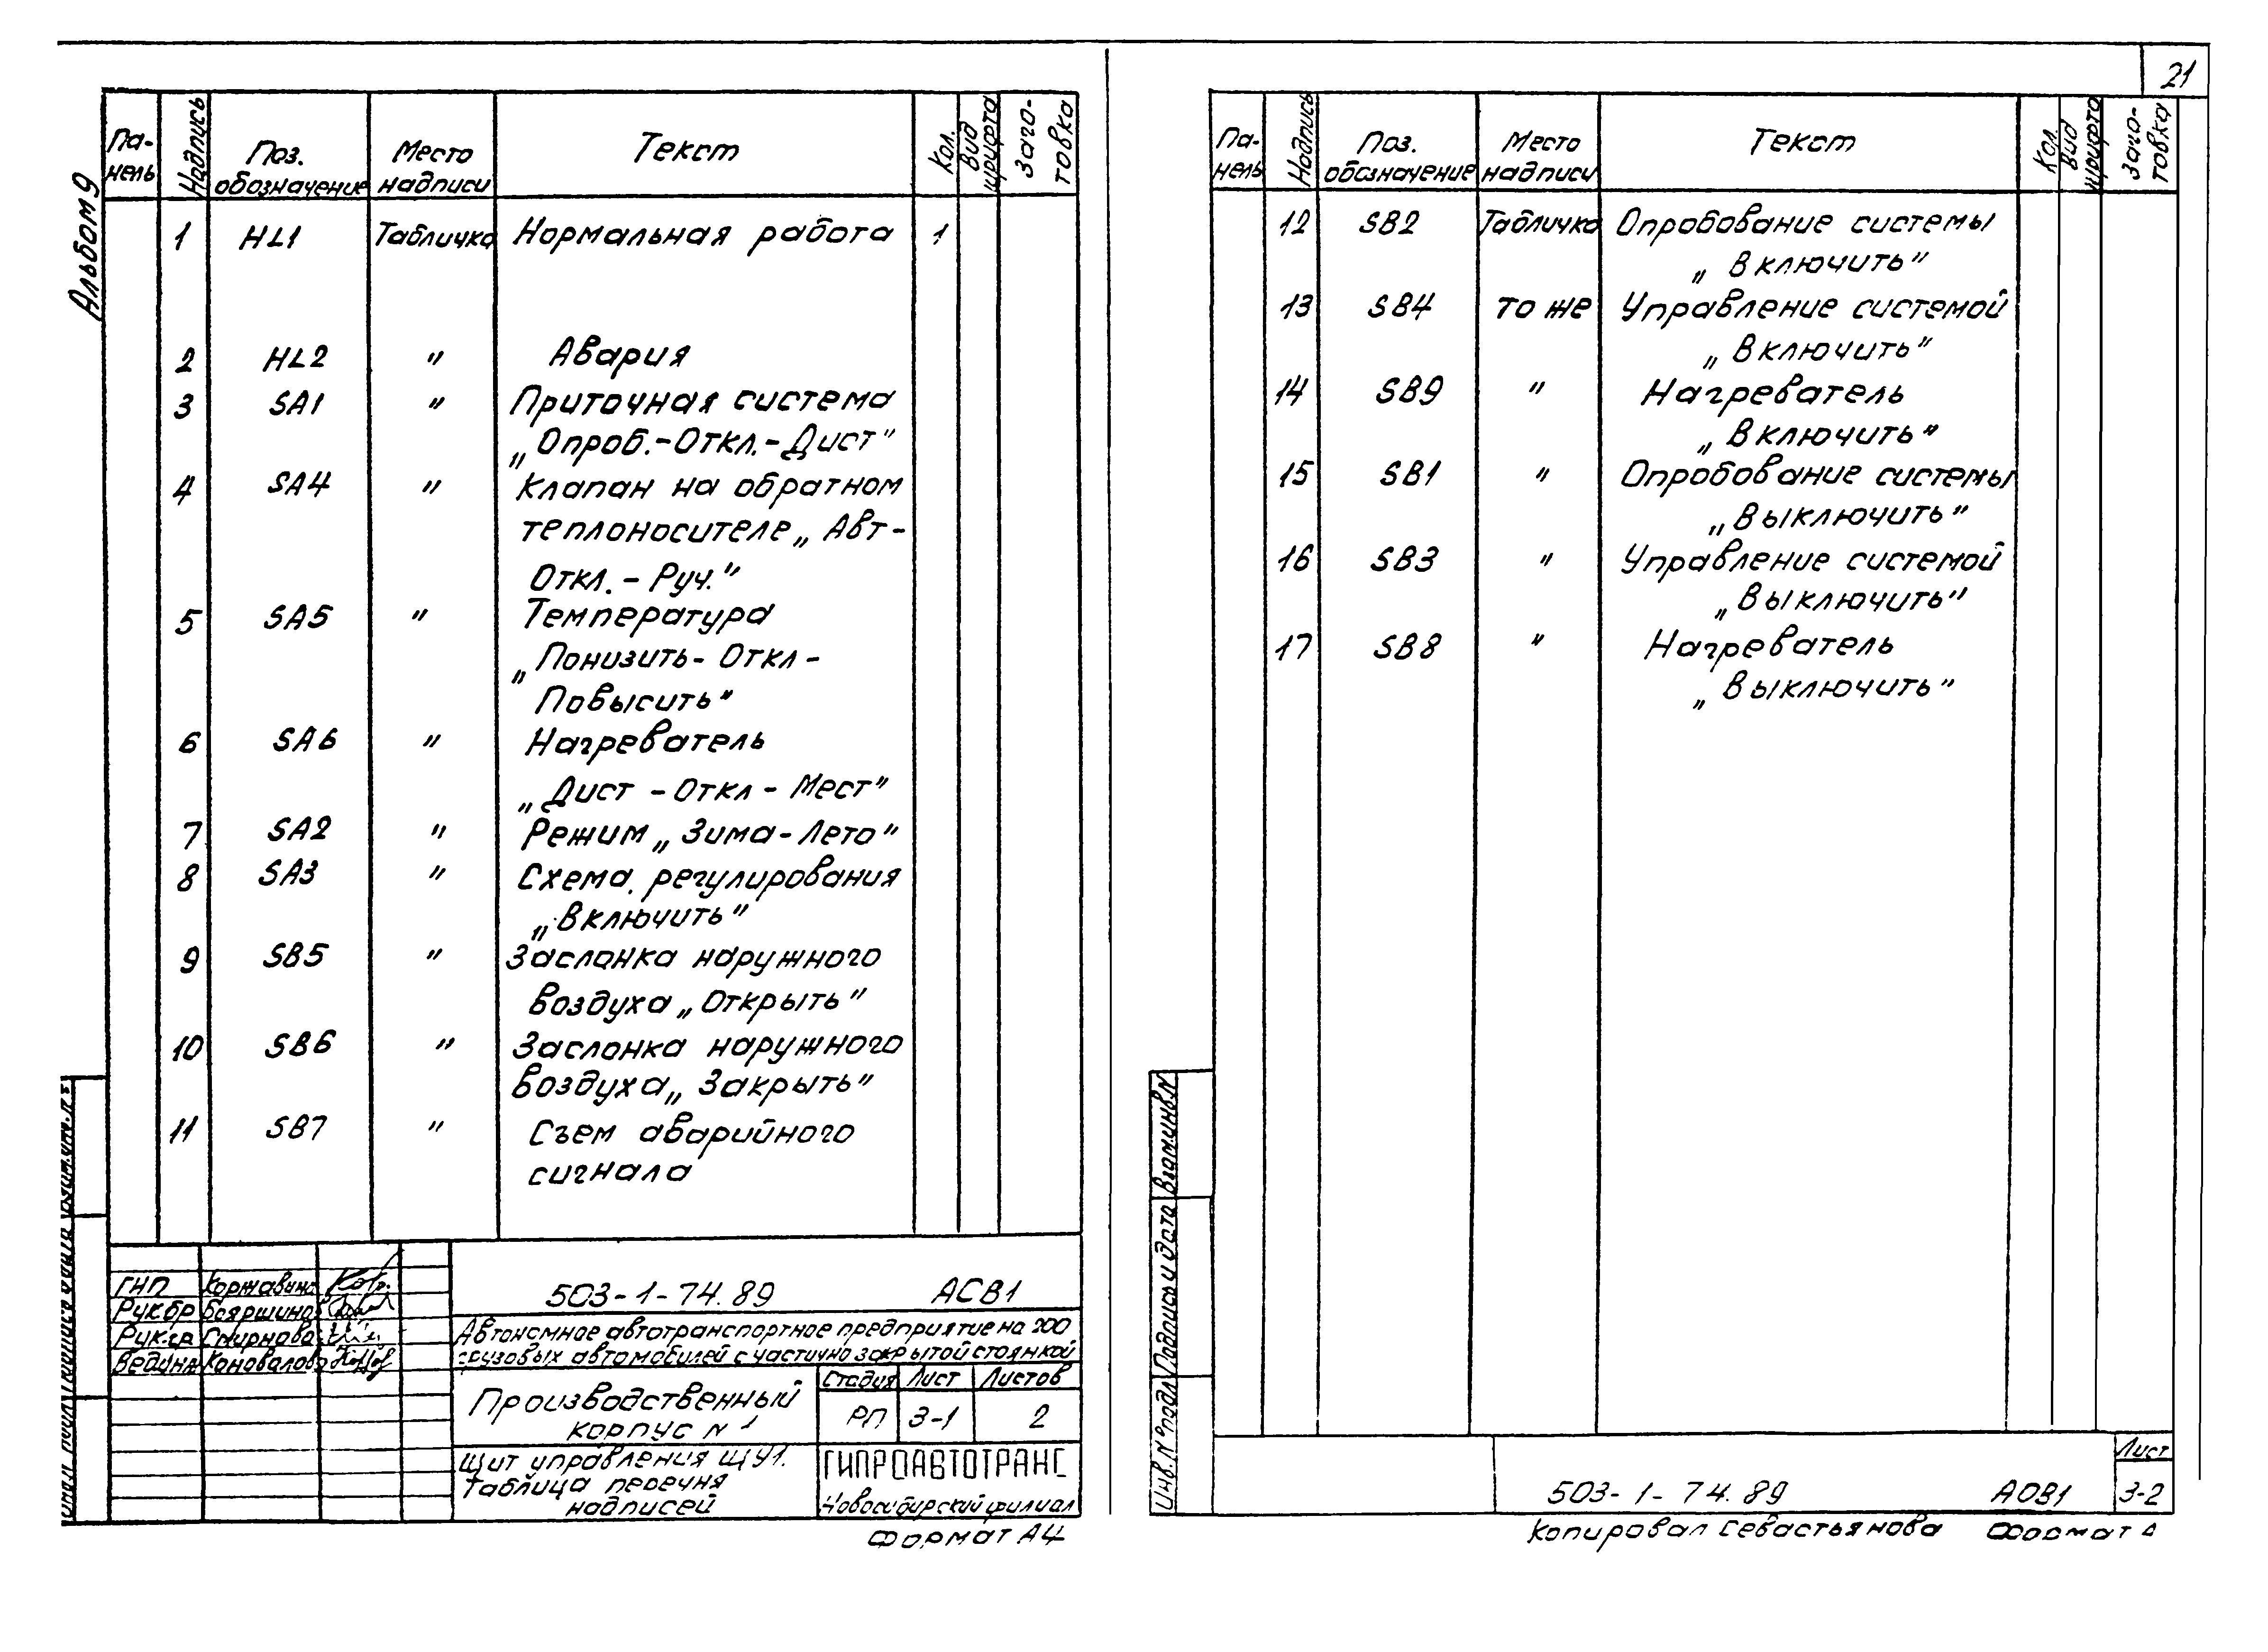 21
Альбом 9
Па-нель Надпись Поз. обозначение Место надписи Текст Кол. Вид шрифта Заго-товка
1 HL1 Табличка Нормальная работа 1
2 HL2 " Авария
3 SA1 " Приточная система
„Опроб.-Откл.-Дист"
4 SA4 " Клапан на обратном
теплоносителе „Авт-
Откл. - Руч."
5 SA5 " Температура
„Понизить- Откл -
Повысить"
6 SA6 " Нагреватель
„Дист - Откл - Мест"
7 SA2 " Режим „Зима-Лето"
8 SA3 " Схема регулирования
„Включить"
9 SB5 " Заслонка наружного
воздуха „Открыть"
10 SB6 " Заслонка наружного
воздуха „Закрыть"
11 SB7 " Съем аварийного
сигнала
ГНП
Рук.бр Бояршинов
Рук.гр Смирнова
Коновалов
503-1-74.89 АСВ1
Автономное автотранспортное предприятие на 200
грузовых автомобилей с частично закрытой стоянкой
Производственный
корпус N 1
Стадия Лист Листов
РП 3-1 2
Щит управления ЩУ1.
Таблица перечня
надписей
ГИПРОАВТОТРАНС
Новосибирский филиал
Формат А4
Па-нель Надпись Поз. обозначение Место надписи Текст Кол. Вид шрифта Заго-товка
12 SB2 Табличка Опробование системы
„Включить"
13 SB4 то же Управление системой
„Включить"
14 SB9 " Нагреватель
„Включить"
15 SB1 " Опробование системы
„Выключить"
16 SB3 " Управление системой
„Выключить"
17 SB8 " Нагреватель
„Выключить"
Инв.N°подл Подпись и дата Взам.инв.N
503-1-74.89 АОВ1
Лист
3-2
Копировал Севастьянова Формат